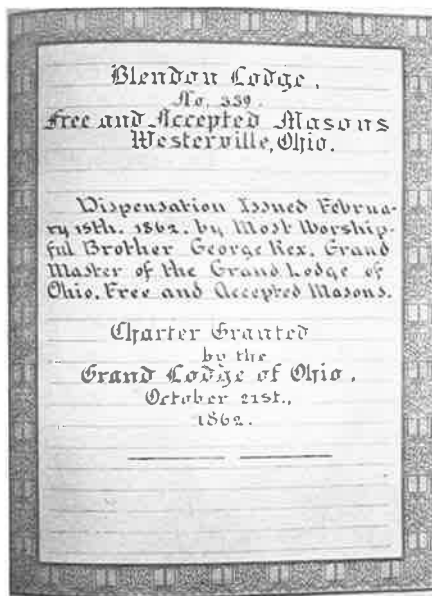 Blendon Lodge,
No. 339.
Free and Accepted Masons
Westerville, Ohio.
Dispensation Issued Februa-
ry 15th. 1862. by Most Worship-
ful Brother George Rex. Grand
Master of the Grand Lodge of
Ohio. Free and Accepted Masons.
Charter Granted
by the
Grand Lodge of Ohio.
October 21st.,
1862.